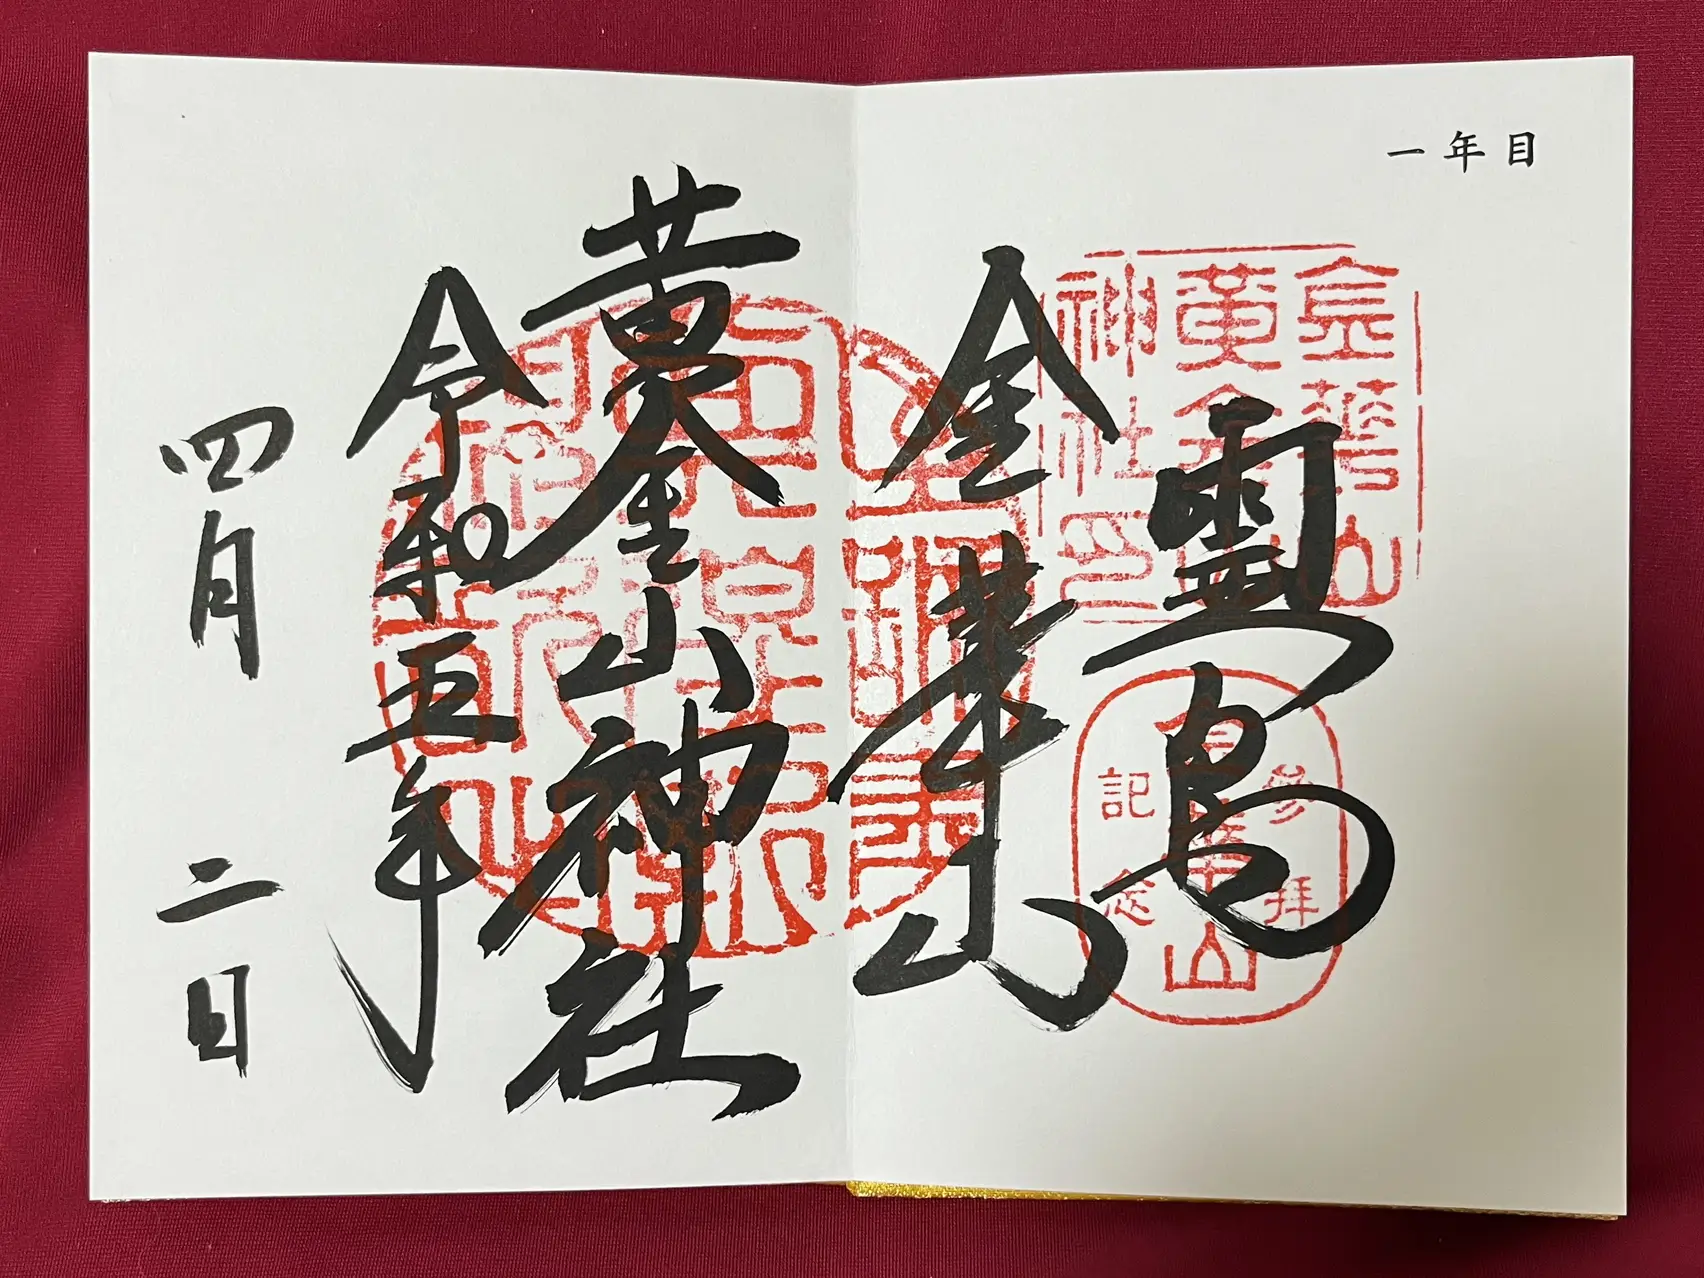 一年目
霊島
金華山
黄金山神社
令和五年
四月二日
金華山
黄金山
神社印
參拝
金華山
記念